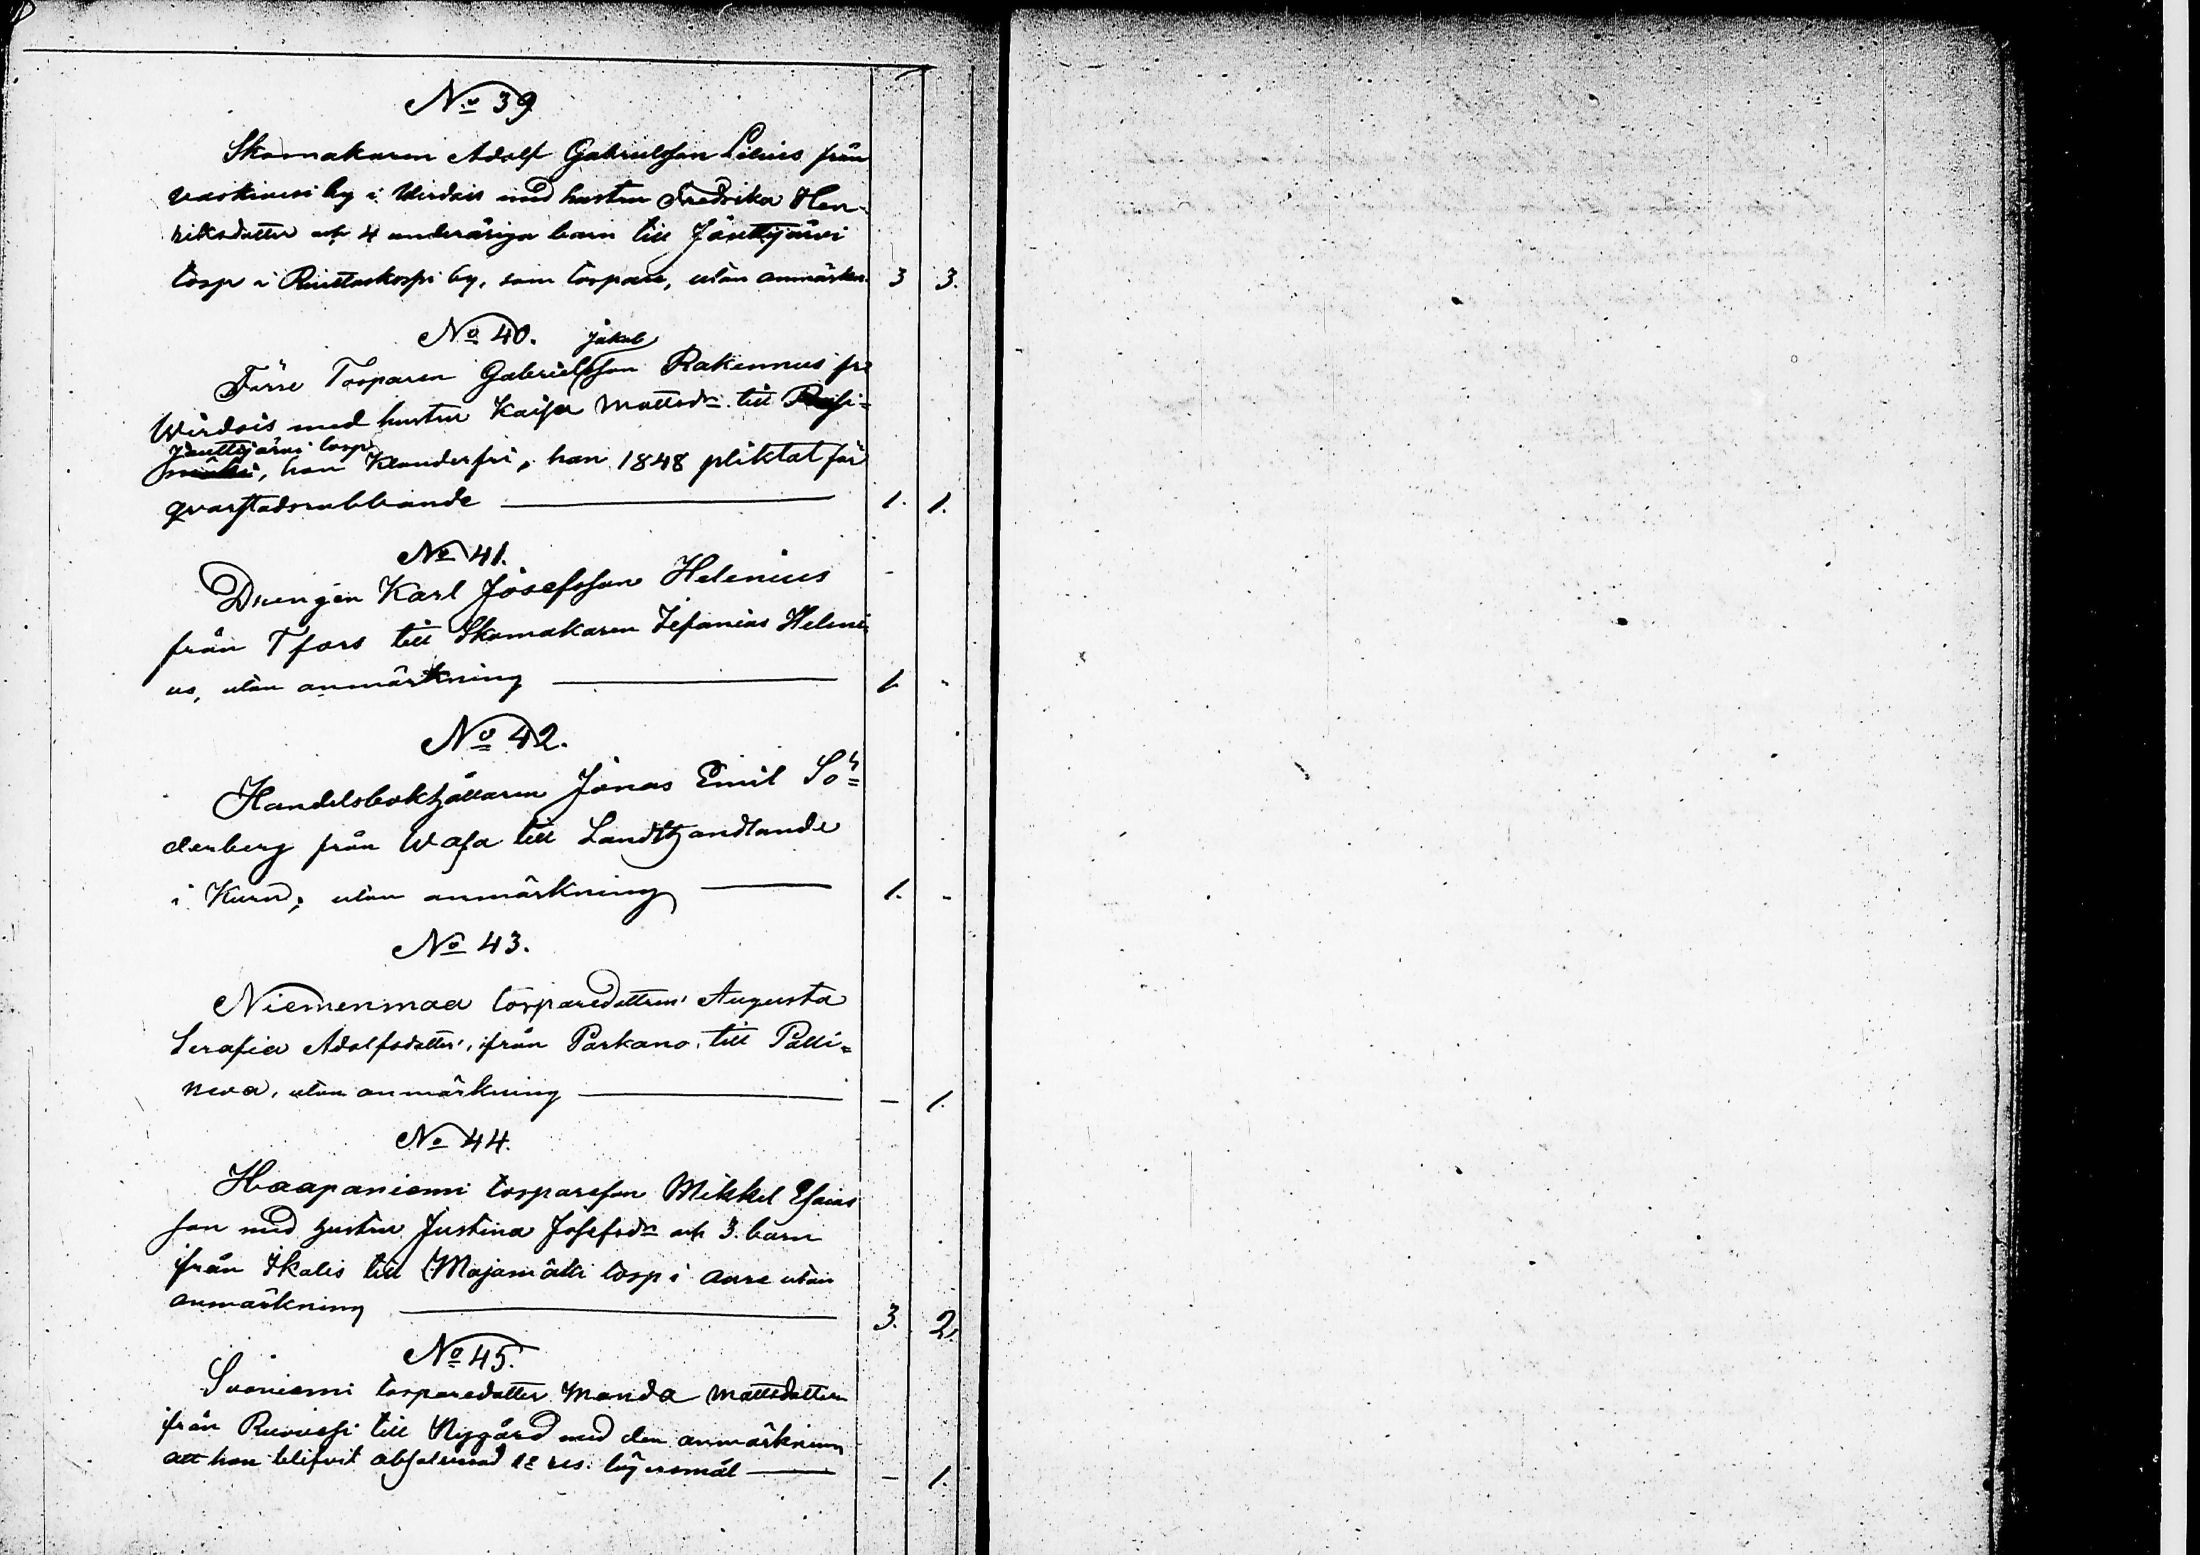 No 39
Skomakaren Adolf Gabrielsson Lilius från
Vaskivesi by i Wirdois med hustru Fredrika Hen-
riksdotter och 4 underåriga barn till Jänttijärvi
torp i Riuttaskorpi by, som torpare, utan anmärkn. 3 3.
No 40. Jakob
Förre Torparen Gabrielsson Rakennus fr
Wirdois med hustru Kaisa Mattsdr till
Jänttijärvi torp
, han klanderfri, han 1848 pliktat för
qvarstadsrubbande 1. 1.
No 41.
Drengen Karl Josefsson Helenius -
från Tfors till Skomakaren Zefanias Heleni
us, utan anmärkning 1 -
No 42.
Handelsbokhållaren Jonas Emil Sö=
derberg från Wasa till Landthandlande
i Kuru, utan anmärkning 1. -
No 43.
Niemenmaa torparedottren Augusta
Serafia Adolfsdotter, ifrån Parkano till Polli=
neva, utan anmärkning - 1.
No 44.
Haapaniemi torpareson Mikkel Esaias
son med hustru Justina Josefsdr och 3 barn
ifrån Ikalis till Majamäki torp i Aure utan
anmärkning 3. 2.
No 45.
Suoniemi torparedotter Manda Mattsdotter
ifrån Ruovesi till Nygård med den anmärkning
att hon blifvit absolverad 1e res. lägersmål - 1.